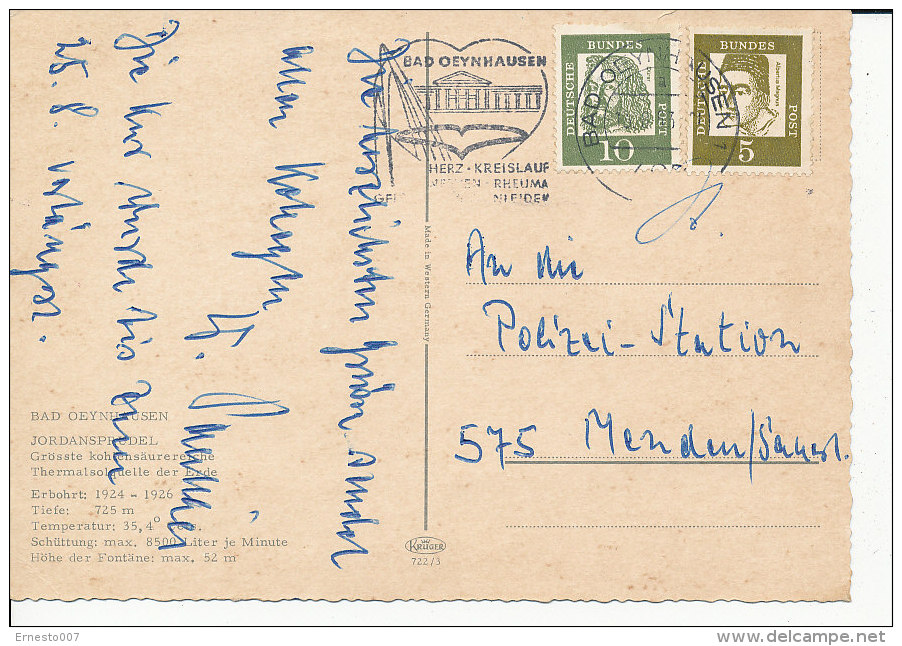 BAD OEYNHAUSEN
HERZ · KREISLAUF
RHEUMA
DEUTSCHE BUNDES POST
10
DEUTSCHE BUNDES POST
Albertus Magnus
5
BAD OEYNHAUSEN
An die
Polizei-Station
575 Menden/Sauerl.
Made in Western Germany
Die Kur wurde bis zum
28. 8. verlängert.
BAD OEYNHAUSEN
JORDANSPRUDEL
Grösste kohlensäurereiche
Thermalsolquelle der Erde
Erbohrt: 1924 - 1926
Tiefe: 725 m
Temperatur: 35,4°
Schüttung: max. 8500 Liter je Minute
Höhe der Fontäne: max. 52 m
KRÜGER
722/3
Ernesto007
www.delcampe.net